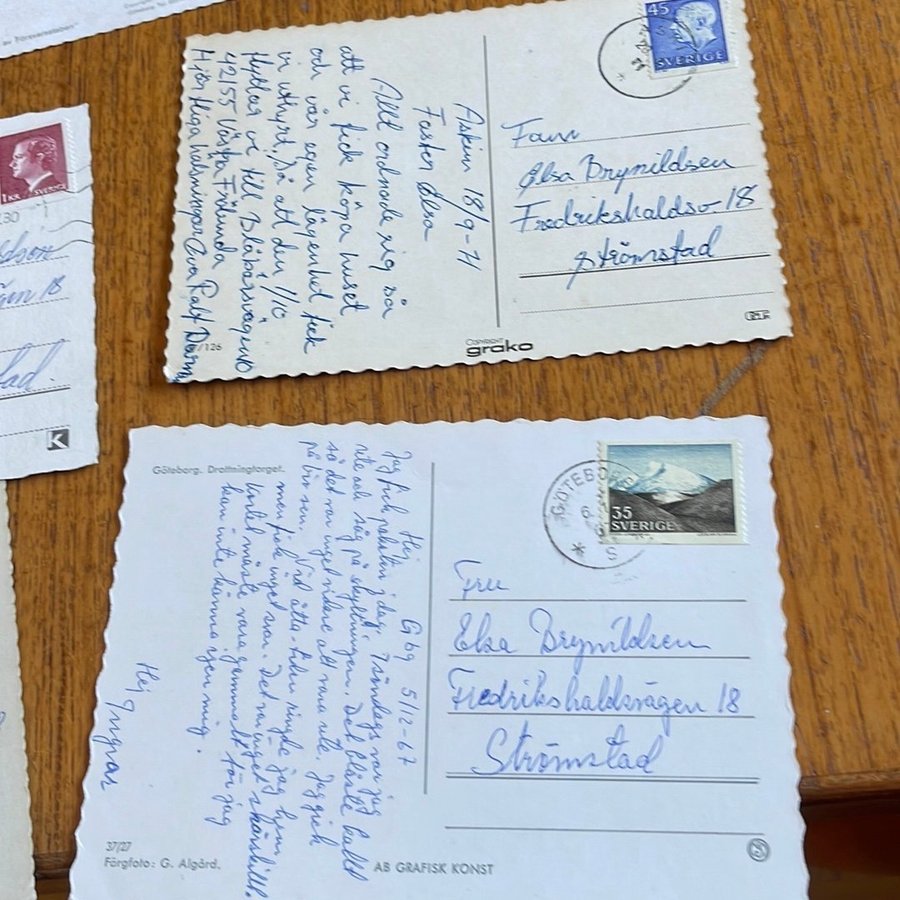 av Försvarsstaben"
1 KR SVERIGE
18
K
Askim 18/9-71
Faster Elsa
Allt ordnade sig så
att vi fick köpa huset
och vår egen lägenhet fick
vi uthyrt, så att den 1/10
flyttar vi till Blåbärsvägen 10
42155 Västra Frölunda
Hjärtliga hälsningar Eva Ralf
/126
COPYRIGHT
grako
45
SVERIGE
Elsa Brynildsen
Fredrikshaldsv. 18
Strömstad
Göteborg. Drottningtorget.
Gbg 5/12-67
Hej
Jag fick paketen i dag. Söndags var jag
ute och såg på skyltningen. Det blåste kallt
så det var inget vidare att vara ute. Jag gick
på bio sen. Vid åtta-tiden ringde jag hem
men fick inget svar. Det var inget
Kortet måste vara gammalt för jag
kan inte känna igen mig.
Hej Ingvar
37/27
Färgfoto: G. Algård.
AB GRAFISK KONST
GÖTEBO
6.
S
35
SVERIGE
Fru
Elsa Brynildsen
Fredrikshaldsvägen 18
Strömstad